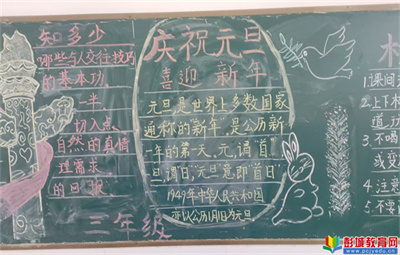 知多少
哪些与人交往技巧
的基本功。
一半
切入点。
自然的真情
理需求。
的回报
三年级
庆祝元旦
喜迎新年
元旦是世界上多数国家
通称的“新年”,是公历新
一年的第一天。元,谓“首”
旦,谓“日”,元旦意即“首日”
1949年中华人民共和国
亦以公历1月1日为元旦
1.课间
2.上下
道
3.不
或
4.注意
5.不要
彭城教育网
www.pcjyedu.cn